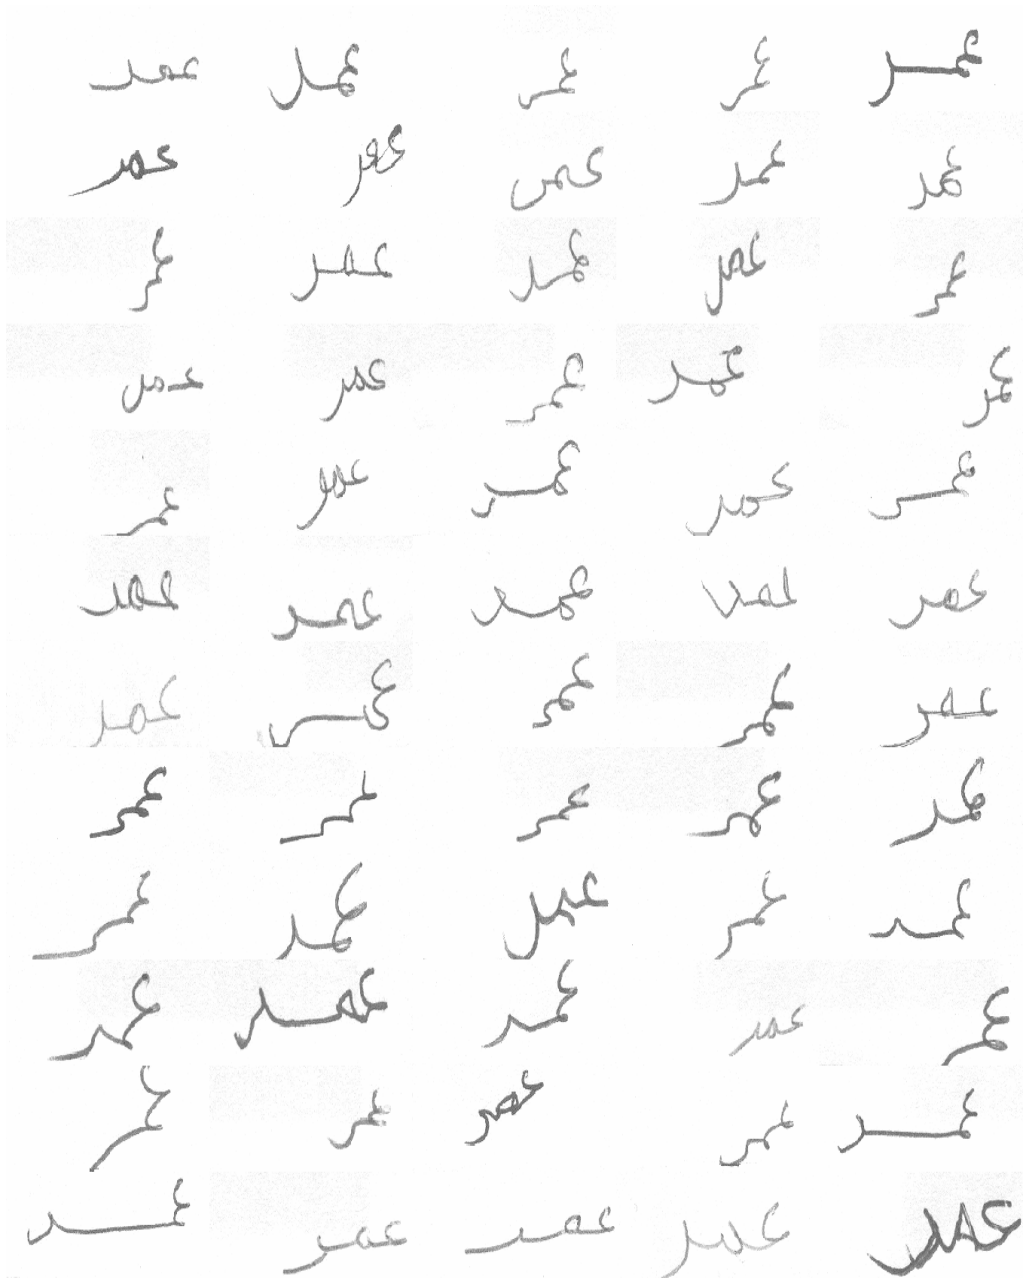 عمر عمر عمر عمر عمر
عمر عمر عمر عمر عمر
عمر عمر عمر عمر عمر
عمر عمر عمر عمر عمر
عمر عمر عمر عمر عمر
عمر عمر عمر عمر عمر
عمر عمر عمر عمر عمر
عمر عمر عمر عمر عمر
عمر عمر عمر عمر عمر
عمر عمر عمر عمر عمر
عمر عمر عمر عمر عمر
عمر عمر عمر عمر عمر